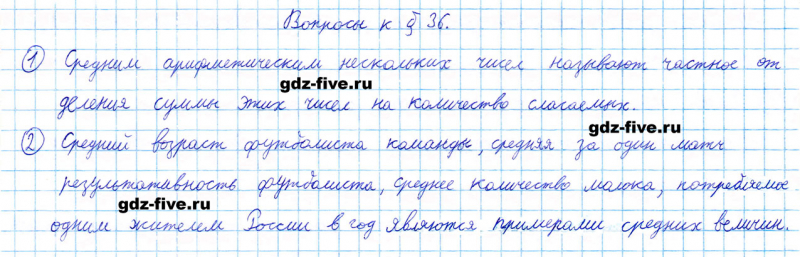 Вопросы к § 36.
1 Средним арифметическим нескольких чисел называют частное от
gdz-five.ru
деления суммы этих чисел на количество слагаемых.
gdz-five.ru
2 Средний возраст футболиста команды, средняя за один матч
результативность футболиста, среднее количество молока, потребляемое
gdz-five.ru
одним жителем России в год являются примерами средних величин.